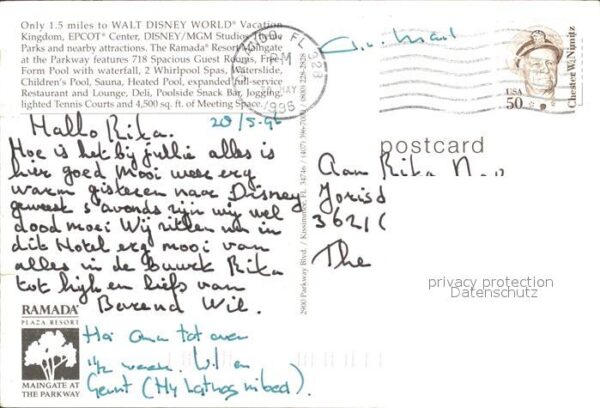 Only 1.5 miles to WALT DISNEY WORLD® Vacation
Kingdom, EPCOT® Center, DISNEY/MGM Studios Theme
Parks and nearby attractions. The Ramada® Resort Maingate
at the Parkway features 718 Spacious Guest Rooms, Free-
Form Pool with waterfall, 2 Whirlpool Spas, Waterslide,
Children's Pool, Sauna, Heated Pool, expanded full-service
Restaurant and Lounge, Deli, Poolside Snack Bar, Jogging,
lighted Tennis Courts and 4,500 sq. ft. of Meeting Space.
20/5-96
Hallo Rika.
Hoe is het bij jullie alles is
hier goed Mooi weer erg
warm gisteren naar Disney
geweest s'avonds zijn wij wel
dood moei Wij zitten nu in
dit Hotel erg mooi van
alles in de buurt Rika
tot kijk en liefs van
Barend Wil.
RAMADA®
PLAZA RESORT
MAINGATE AT
THE PARKWAY
Hoi Oma tot over
1½ week. Wil en
Gerrit
2900 Parkway Blvd. / Kissimmee, FL 34746 / (407) 396-7000 / (800) 228-2828
FL 328
PM
MAY
1996
USA
50
Chester W. Nimitz
postcard
Aan Rika
Joris
3621C
The
privacy protection
Datenschutz